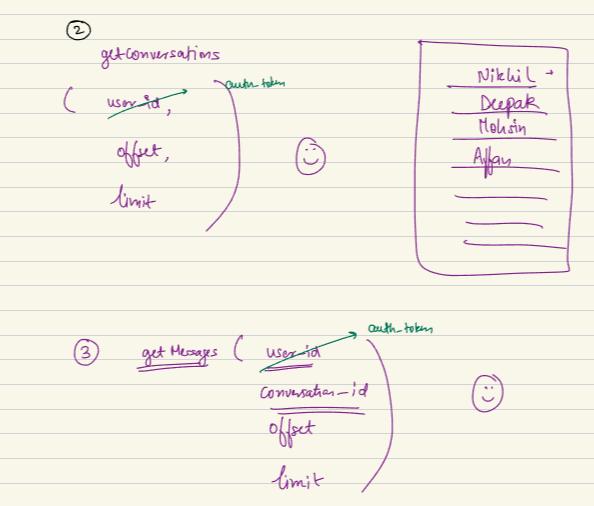 2
getConversations
( user-id, auth-token
offset,
limit
)
Nikhil
Deepak
Mohsin
Affan
3 getMessages ( user-id auth-token
conversation-id
offset
limit
)